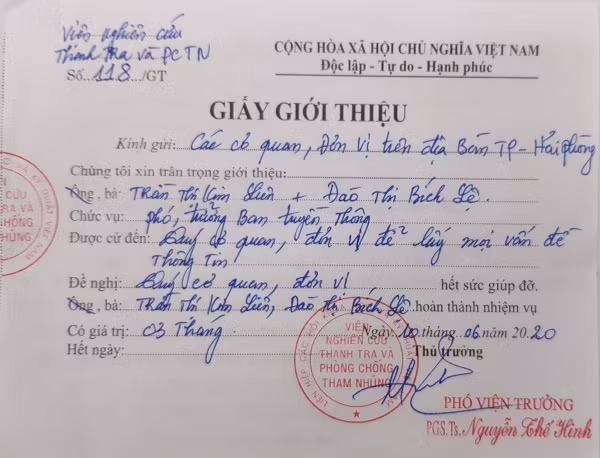 Viện nghiên cứu
Thanh Tra và PCTN
Số...118.../GT
CỘNG HÒA XÃ HỘI CHỦ NGHĨA VIỆT NAM
Độc lập - Tự do - Hạnh phúc
GIẤY GIỚI THIỆU
Kính gửi: Các cơ quan, Đơn vị trên địa Bàn TP - Hải phòng
Chúng tôi xin trân trọng giới thiệu:
Ông, bà: Trần Thị Kim Liên + Đào Thị Bích Lệ.
Chức vụ: phó, trưởng Ban truyền Thông
Được cử đến: Quý cơ quan, đơn vị để lấy mọi vấn đề
Thông Tin
Đề nghị: Quý cơ quan, đơn vị hết sức giúp đỡ.
Ông, bà: Trần Thị Kim Liên, Đào Thị Bích Lệ. hoàn thành nhiệm vụ
Có giá trị: 03 Thang. Ngày 10 tháng 06 năm 2020
Hết ngày: Thủ trưởng
LIÊN HIỆP CÁC HỘI KHOA HỌC VÀ KỸ THUẬT VIỆT NAM
VIỆN
NGHIÊN CỨU
THANH TRA VÀ
PHÒNG CHỐNG
THAM NHŨNG
PHÓ VIỆN TRƯỞNG
PGS.Ts. Nguyễn Thế Hinh
VÀ KỸ THUẬT VIỆT NAM
CỨU
TRA VÀ
CHỐNG
NHŨNG